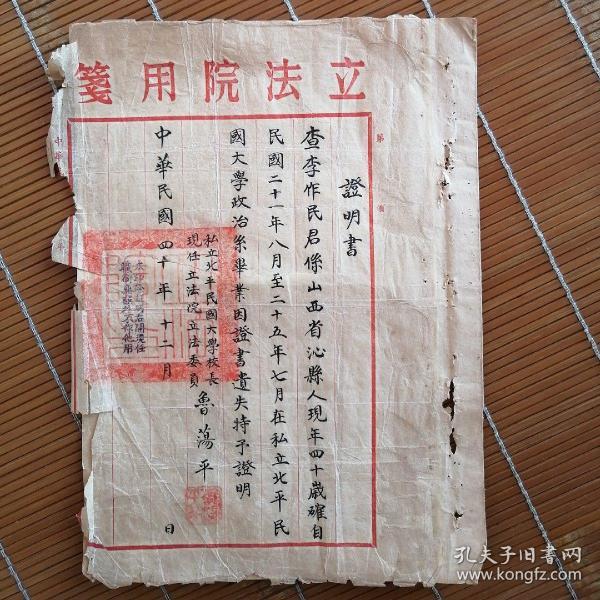 立法院用箋
第
證明書
查李作民君係山西省沁縣人現年四十歲確自
民國二十一年八月至二十五年七月在私立北平民
國大學政治系畢業因證書遺失特予證明
私立北平民國大學校長
現任立法院立法委員
魯蕩平
中華民國四十年十二月 日
中華
孔夫子旧书网
www.kongfz.com